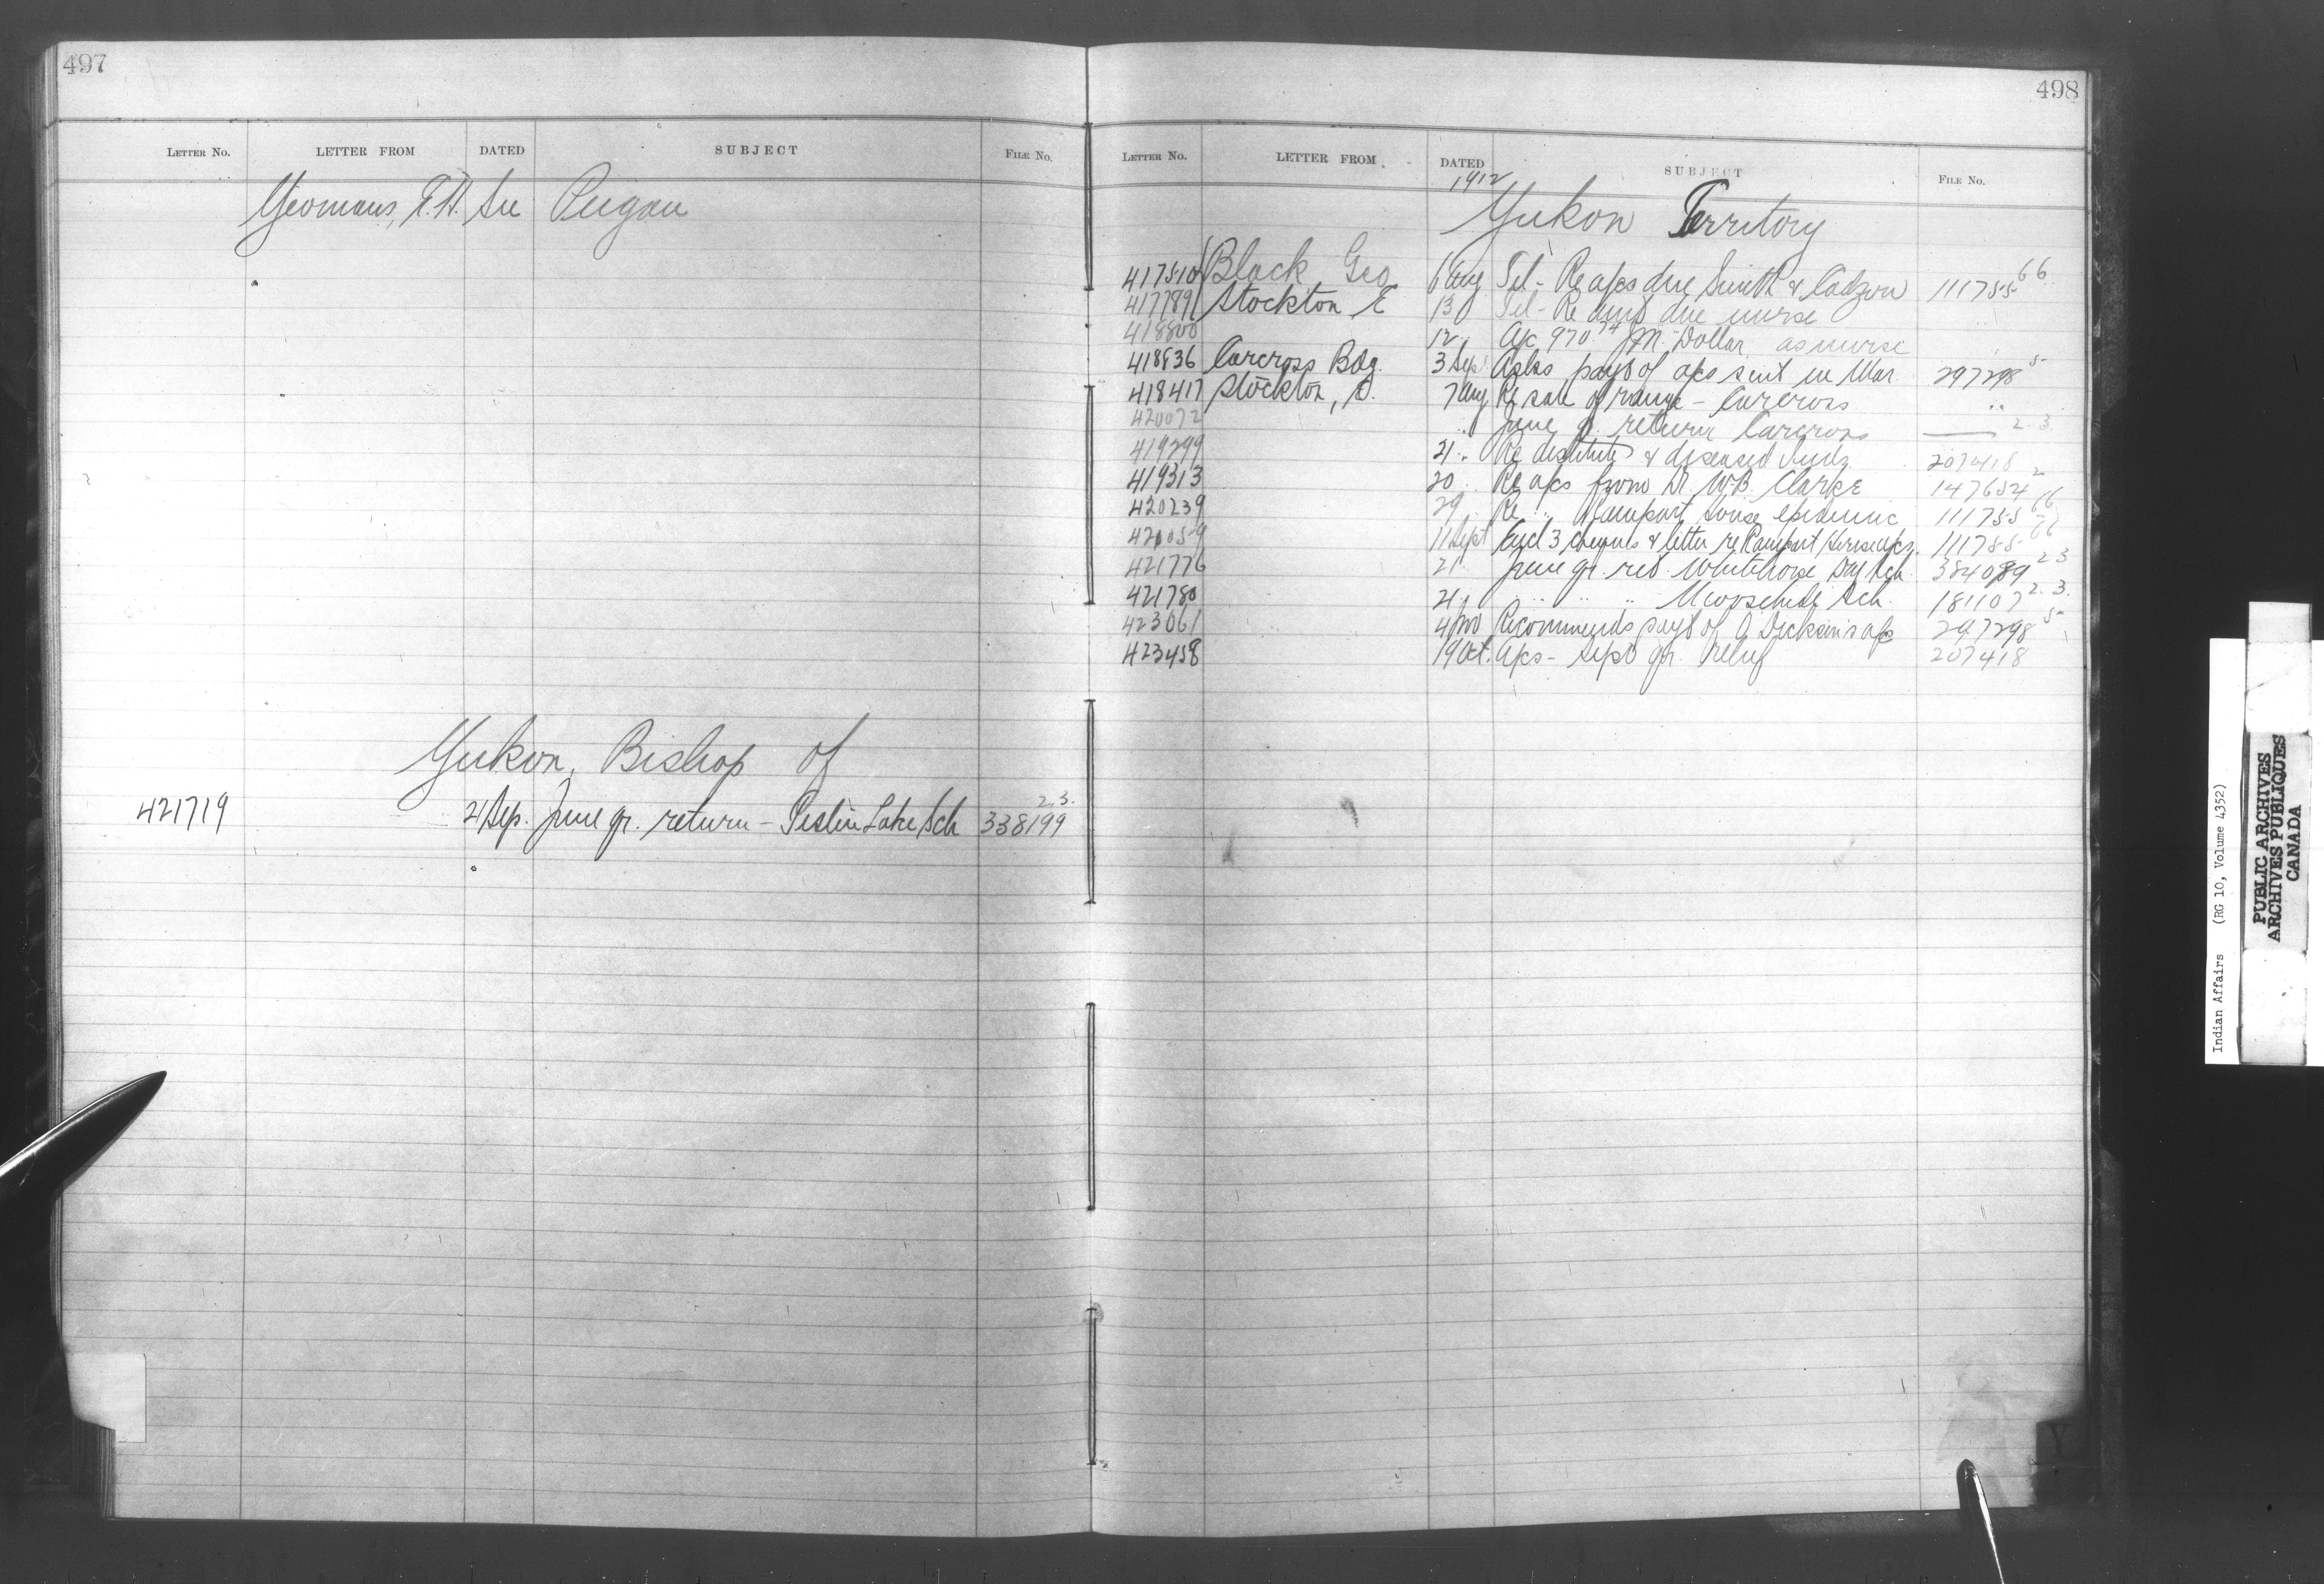 497
LETTER NO. LETTER FROM DATED SUBJECT FILE NO.
Yeomans, E.H. See Peigan
Yukon, Bishop of
421719 21 Sep. June qr. return - Teslin Lake Sch 338199 2.3.
498
LETTER NO. LETTER FROM DATED SUBJECT FILE NO.
1912
Yukon Territory
417510 Black Geo 6 Aug Tel - Re a/cs due Smith & Cadzow 111755 66
417789 Stockton E 13 Tel - Re amt due nurse
418800 12 .. A/c 970 74 J M. Dollar as nurse
418836 Carcross Bdg. 3 Sep Asks payt of a/cs sent in Mar. 297298 5
418417 Stockton, E. 7 Aug Re sale of range - Carcross ..
420072 .. June qr. return Carcross 2.3.
419299 21 .. Re destitute & diseased Inds. 207418
419313 20 .. Re a/cs from Dr. W.B. Clarke 147654 2
420239 29 .. Re .. Rampart House epidemic 111755 66
421059 11 Sept Encl 3 cheques & letter re Rampart House a/cs. 111755 66
421776 21 .. June qr. ret. Whitehorse Day Sch. 384089 2.3
421780 21 .. .. .. .. Moosehide Sch. 181107 2.3.
423061 4 Recommends payt of A Dickson's a/c 297298 5
423458 19 Oct. A/cs - Sept qr. Relief 207418
Y
Indian Affairs (RG 10, Volume 4352)
PUBLIC ARCHIVES
ARCHIVES PUBLIQUES
CANADA